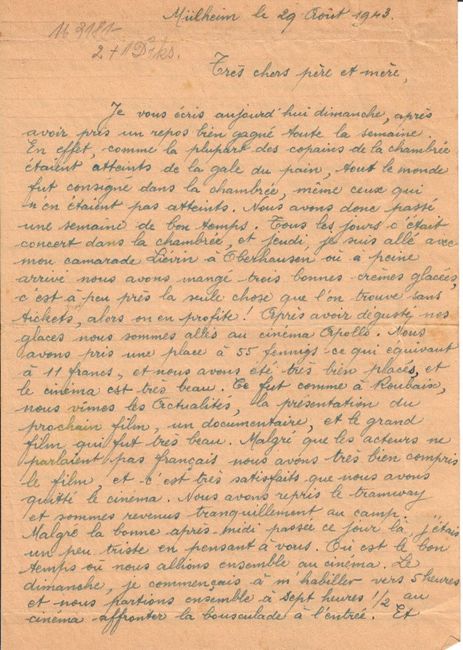 Mülheim le 29 Août 1943.
Très chers père et mère,
Je vous écris aujourd'hui dimanche, après
avoir pris un repos bien gagné toute la semaine.
En effet, comme la plupart des copains de la chambrée
étaient atteints de la gale du pain, tout le monde
fut consigné dans la chambrée, même ceux qui
n'en étaient pas atteints. Nous avons donc passé
une semaine de bon temps. Tous les jours c'était
concert dans la chambrée, et jeudi, je suis allé avec
mon camarade Liévin à Oberhausen où à peine
arrivé nous avons mangé trois bonnes crêmes glacées,
c'est à peu près la seule chose que l'on trouve sans
tickets, alors on en profite ! Après avoir dégusté nos
glaces nous sommes allés au cinéma Apollo. Nous
avons pris une place à 55 fennigs - ce qui équivaut
à 11 francs, et nous avons été très bien placés, et
le cinéma est très beau. Ce fut comme à Roubaix,
nous vîmes les Actualités, la présentation du
prochain film, un documentaire, et le grand
film qui fut très beau. Malgré que les acteurs ne
parlaient pas français nous avons très bien compris
le film, et c'est très satisfaits que nous avons
quitté le cinéma. Nous avons repris le tramway
et sommes revenus tranquillement au camp.
Malgré la bonne après-midi passée ce jour là j'étais
un peu triste en pensant à vous. Où est le bon
temps où nous allions ensemble au cinéma. Le
dimanche, je commençais à m'habiller vers 5 heures
et nous partions ensemble à sept heures 1/2 au
cinéma affronter la bousculade à l'entrée. Et